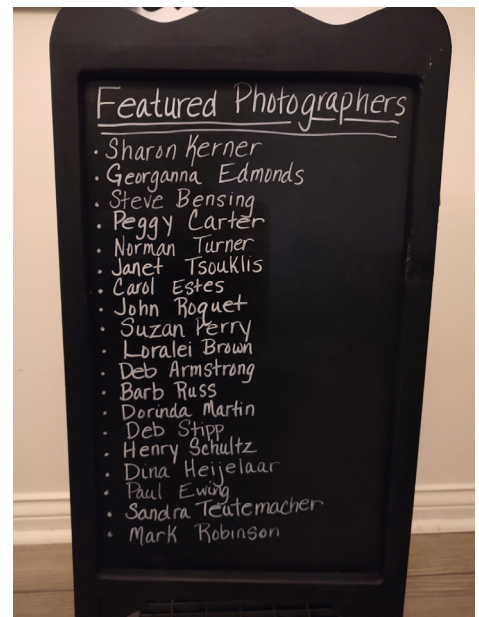 Featured Photographers
· Sharon Kerner
· Georganna Edmonds
· Steve Bensing
· Peggy Carter
· Norman Turner
· Janet Tsouklis
· Carol Estes
· John Roquet
· Suzan Perry
· Loralei Brown
· Deb Armstrong
· Barb Russ
· Dorinda Martin
· Deb Stipp
· Henry Schultz
· Dina Heijelaar
· Paul Ewing
· Sandra Teutemacher
· Mark Robinson